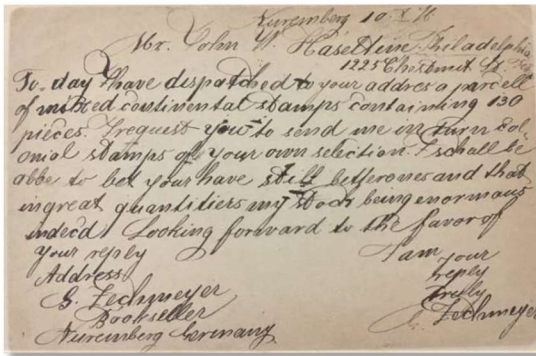 Nuremberg 10 X 76
Mr. John W. Haseltine Philadelphia
1225 Chestnut St.
To-day I have dispatched to your address a parcell
of mitxed continental stamps containing 130
pieces. I request you to send me in turn Col-
onial stamps of your own selection. I schall be
abbe to bet your have still betterones and that
ingreat quantitiers my stock being enormous
indecd Looking forward to the favor of
your reply I am your
Address reply
G. Zechmeyer truly
Bookseller G. Zechmeyer
Nuremberg Germany